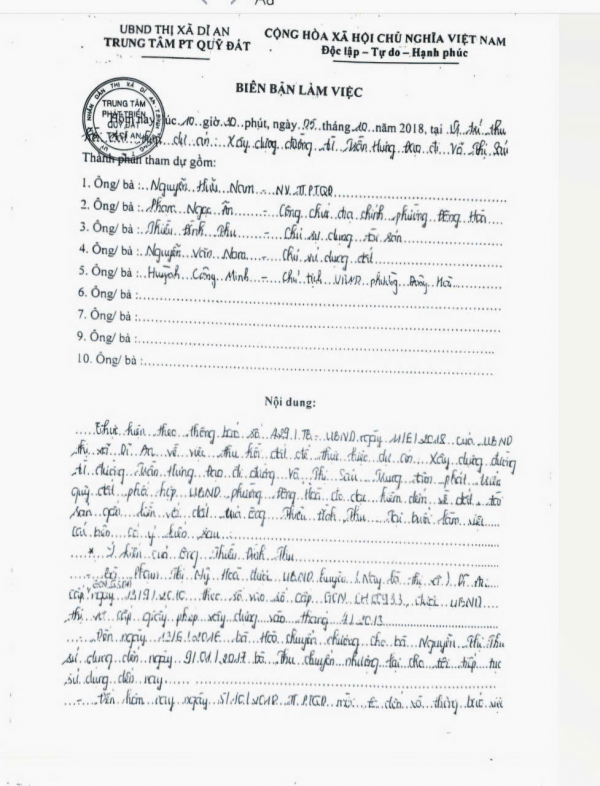 UBND THỊ XÃ DĨ AN
TRUNG TÂM PT QUỸ ĐẤT
CỘNG HÒA XÃ HỘI CHỦ NGHĨA VIỆT NAM
Độc lập – Tự do – Hạnh phúc
BIÊN BẢN LÀM VIỆC
TRUNG TÂM
PHÁT TRIỂN
QUỸ ĐẤT
THỊ XÃ DĨ AN
Hôm nay, lúc 10 giờ 10 phút, ngày 05 tháng 10 năm 2018, tại vị trí thu
dự án: Xây dựng đường từ Trần Hưng Đạo đi Võ Thị Sáu
Thành phần tham dự gồm:
1. Ông/ bà : Nguyễn Hữu Nam - NV. TT. PTQĐ
2. Ông/ bà : Phạm Ngọc Ân - Công chức địa chính phường Đông Hoà
3. Ông/ bà : Thiều Đình Thu - Chủ sử dụng tài sản
4. Ông/ bà : Nguyễn Văn Nam - Chủ sử dụng đất
5. Ông/ bà : Huỳnh Công Minh - Chủ tịch UBND phường Đông Hoà
6. Ông/ bà :
7. Ông/ bà :
9. Ông/ bà :
10. Ông/ bà :
Nội dung:
Thực hiện theo thông báo số 429/TB-UBND ngày 11/6/2018 của UBND
thị xã Dĩ An về việc thu hồi đất để thực hiện dự án Xây dựng đường
từ đường Trần Hưng Đạo đi đường Võ Thị Sáu Trung tâm phát triển
quỹ đất phối hợp UBND phường Đông Hoà đo đạc kiểm đếm về đất, tài
sản gắn liền với đất của ông Thiều Đình Thu. Tại buổi làm việc
các bên có ý kiến sau:
* Ý kiến của ông Thiều Đình Thu
Bà Phạm Thị Mỹ Hoà được UBND huyện (Nay là thị xã) Dĩ An
cấp ngày 13/9/2010 theo số vào sổ cấp GCN CH 02933, được UBND
thị xã cấp giấy phép xây dựng vào tháng 4/2013
- Đến ngày 13/6/2016 bà Hoà chuyển nhượng cho bà Nguyễn Thị Thu
sử dụng đến ngày 9/01/2017 bà Thu chuyển nhượng lại cho tôi tiếp tục
sử dụng đến nay
- Đến hôm nay ngày 5/10/2018 TT. PTQĐ mời tôi đến thông báo việc